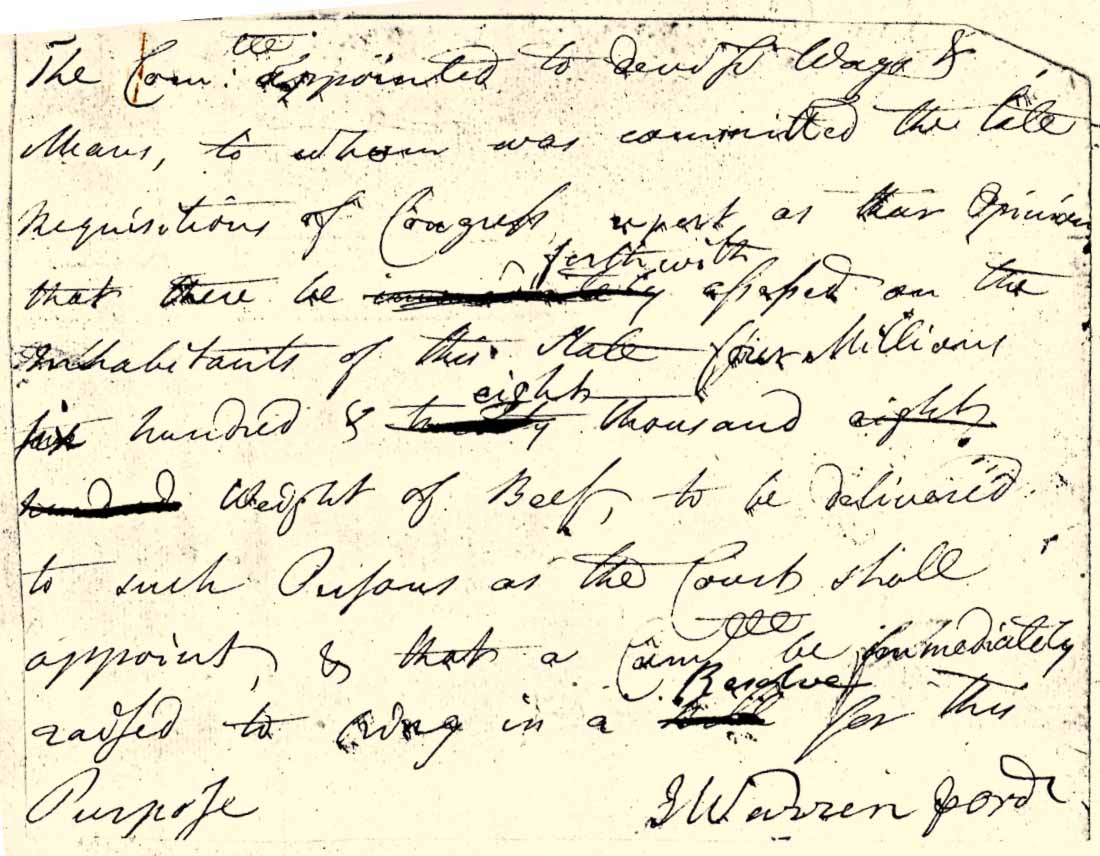 The Com:ttee appointed to devise Ways &
Means, to whom was committed the late
Requisitions of Congress, report as their Opinion
forthwith
that there be immediately assessed on the
Inhabitants of this State four Millions
eight
six hundred & twenty thousand eight
hundred Weight of Beef, to be delivered
to such Persons as the Court shall
appoint, & that a Comttee be immediately
Resolve
raised to bring in a bill for this
Purpose
J Warren pord